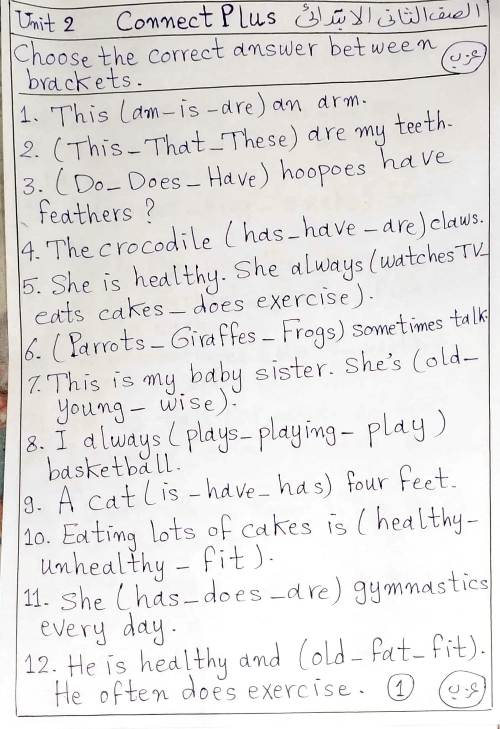 Unit 2 Connect Plus الصف الثانى الابتدائى
Choose the correct answer between
brackets. عربى
1. This (am-is-are) an arm.
2. (This-That-These) are my teeth.
3. (Do-Does-Have) hoopoes have
feathers ?
4. The crocodile (has-have-are) claws.
5. She is healthy. She always (watches TV-
eats cakes-does exercise).
6. (Parrots-Giraffes-Frogs) sometimes talk.
7. This is my baby sister. She's (old-
young-wise).
8. I always (plays-playing-play)
basketball.
9. A cat (is-have-has) four feet.
10. Eating lots of cakes is (healthy-
unhealthy-fit).
11. She (has-does-are) gymnastics
every day.
12. He is healthy and (old-fat-fit).
He often does exercise. 1 عربى